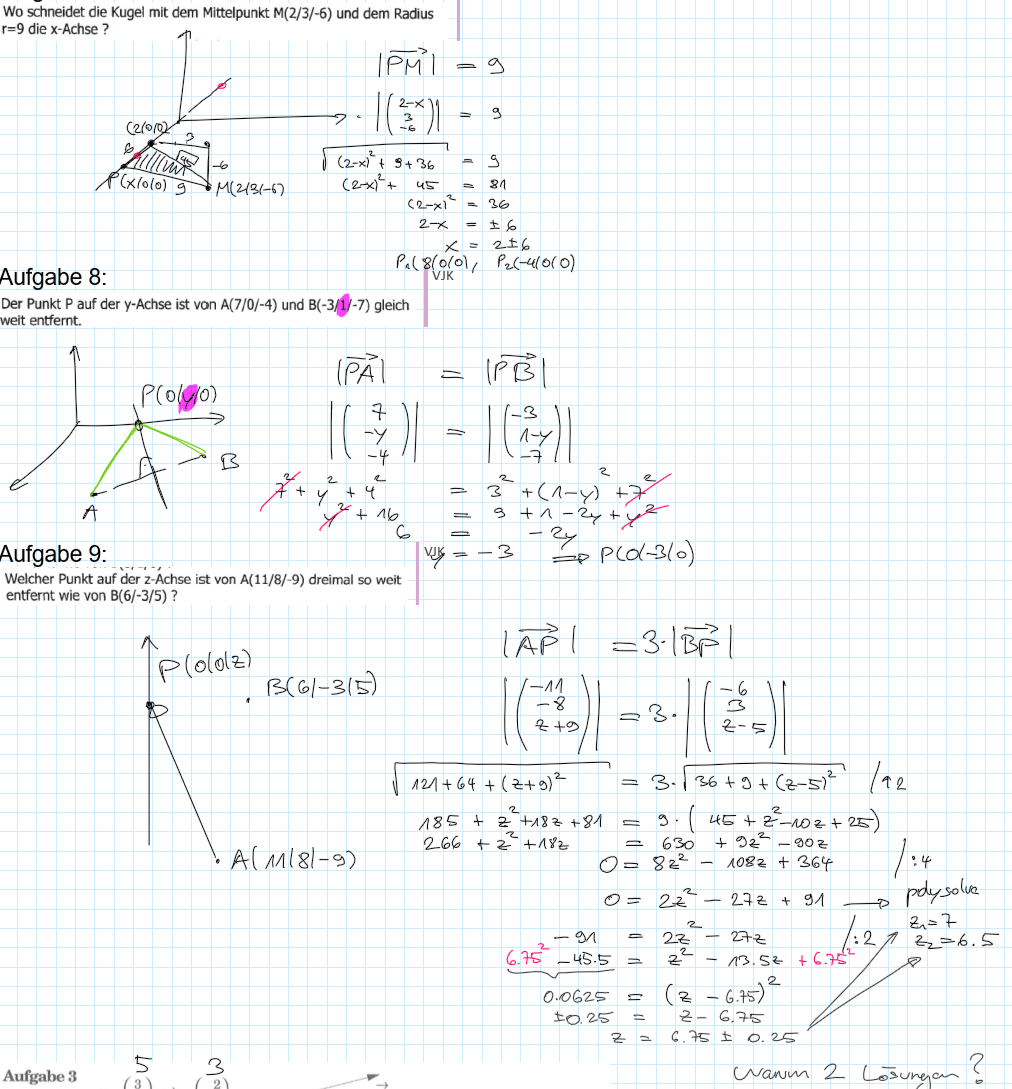 Wo schneidet die Kugel mit dem Mittelpunkt M(2/3/-6) und dem Radius
r=9 die x-Achse ?
|PM| = 9
|(2-x 3 -6)| = 9
(2/0/0)
3
6
√45
-6
P(x/0/0) 9 M(2/3/-6)
√((2-x)² + 9+36) = 9
(2-x)² + 45 = 81
(2-x)² = 36
2-x = ±6
x = 2±6
P₁(8/0/0), P₂(-4/0/0)
VJK
Aufgabe 8:
Der Punkt P auf der y-Achse ist von A(7/0/-4) und B(-3/1/-7) gleich
weit entfernt.
P(0/y/0)
B
A
|PA| = |PB|
|(7 -y -4)| = |(-3 1-y -7)|
7² + y² + 4² = 3² + (1-y)² + 7²
y² + 16 = 9 + 1 - 2y + y²
6 = -2y
y = -3 ⟹ P(0/-3/0)
VJK
Aufgabe 9:
Welcher Punkt auf der z-Achse ist von A(11/8/-9) dreimal so weit
entfernt wie von B(6/-3/5) ?
P(0/0/z)
B(6/-3/5)
A(11/8/-9)
|AP| = 3·|BP|
|(-11 -8 z+9)| = 3·|(-6 3 z-5)|
√(121+64+(z+9)²) = 3·√(36+9+(z-5)²) /↑2
185 + z²+18z+81 = 9·(45+z²-10z+25)
266 + z² +18z = 630 + 9z² -90z
0 = 8z² - 108z + 364 /:4
0 = 2z² - 27z + 91 → polysolve
z₁=7
z₂=6.5
-91 = 2z² - 27z /:2
6.75² -45.5 = z² - 13.5z + 6.75²
0.0625 = (z - 6.75)²
±0.25 = z - 6.75
z = 6.75 ± 0.25
Warum 2 Lösungen?
Aufgabe 3
5 3
(3) (2)